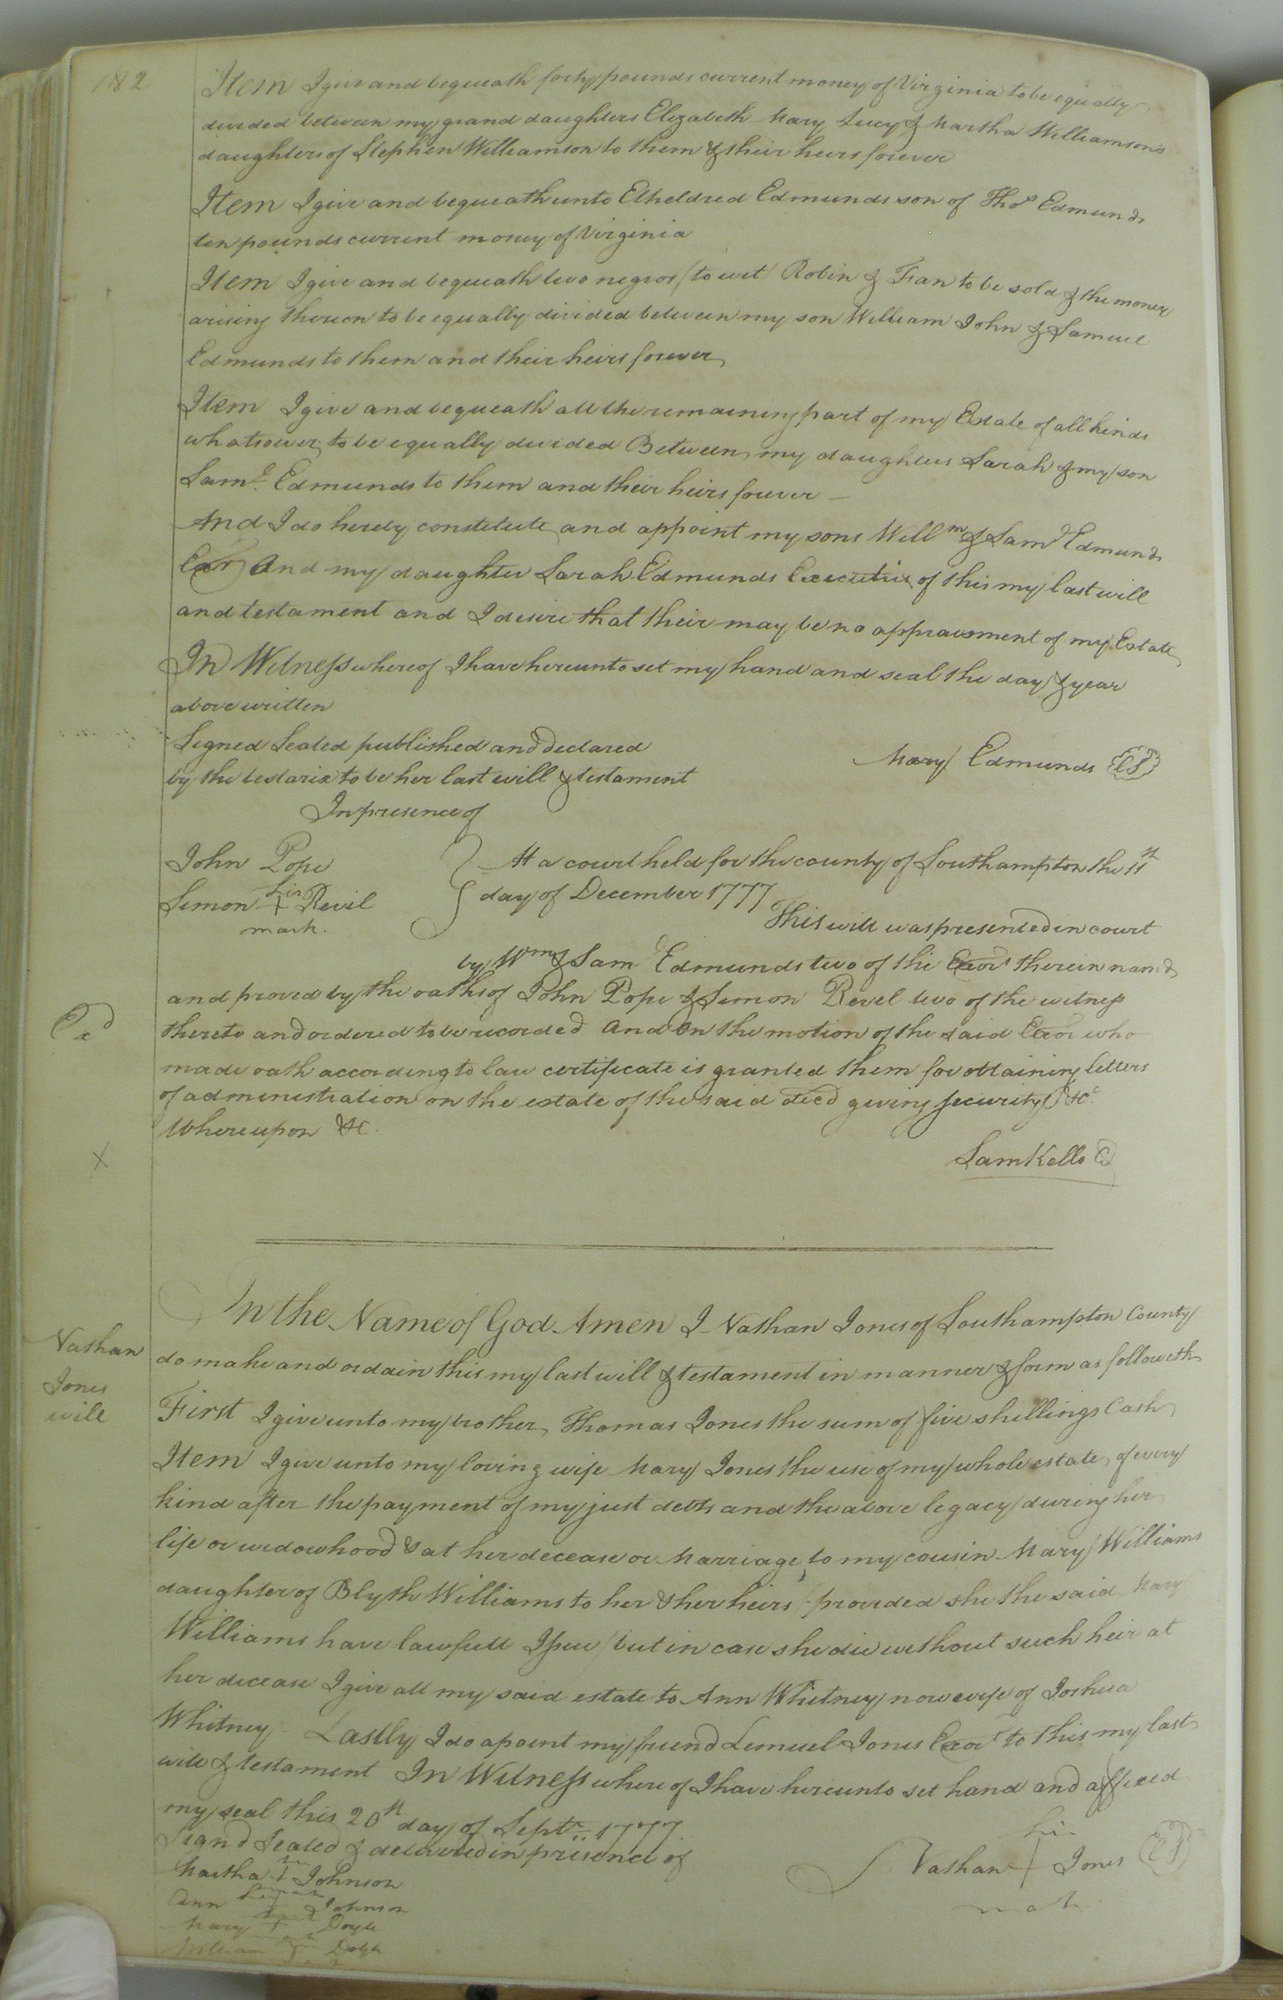 182
Item I give and bequeath forty pounds current money of Virginia to be equally
divided between my grand daughters Elizabeth Mary Lucy & Martha Williamsons
daughters of Stephen Williamson to them & their heirs forever
Item I give and bequeath unto Etheldred Edmunds son of Thos Edmunds
ten pounds current money of Virginia
Item I give and bequeath two negros (to wit) Robin & Fran to be sold & the money
arising thereon to be equally divided between my son William John & Samuel
Edmunds to them and their heirs forever
Item I give and bequeath all the remaining part of my Estate of all kinds
whatsoever to be equally divided Between my daughter Sarah & my son
Saml. Edmunds to them and their heirs forever
And I do hereby constitute and appoint my sons Willm & Saml Edmunds
Exrs And my daughter Sarah Edmunds Executrix of this my last will
and testament and I desire that their may be no appraisment of my Estate
In Witness whereof I have hereunto set my hand and seal the day & year
above written
Signed Sealed published and declared
by the testarix to be her last will & testament
Mary Edmunds LS
In presence of
John Pope
Simon his + Revil
mark.
At a court held for the county of Southampton the 11th
day of December 1777
This will was presented in court
by Wm & Sam Edmunds two of the Exors therein namd
and proved by the oaths of John Pope & Simon Revel two of the witness
thereto and ordered to be recorded And On the motion of the said Exors who
made oath according to law certificate is granted them for obtaining letters
of administration on the estate of the said decd giving security &c.
Whereupon &c.
Sam Kello C
Nathan
Jones
will
In the Name of God Amen I Nathan Jones of Southampton County
do make and ordain this my last will & testament in manner & form as followeth
First I give unto my brother Thomas Jones the sum of five shillings Cash
Item I give unto my loving wife Mary Jones the use of my whole estate of every
kind after the payment of my just debts and the above legacy during her
life or widowhood & at her decease or Marriage, to my cousin Mary Williams
daughter of Blyth Williams to her & her heirs provided she the said Mary
Williams have lawfull Issue but in case she die without such heir at
her decease I give all my said estate to Ann Whitney now wife of Joshua
Whitney Lastly I do apoint my friend Lemuel Jones Exor to this my last
will & testament In Witness where of I have hereunto set hand and affixed
my seal this 20th day of Septr. 1777
Signd Sealed & delivered in presence of
Nathan his + Jones LS
mark
Martha + Johnson
Ann Johnson
Mary + Doyle
William + Doyle